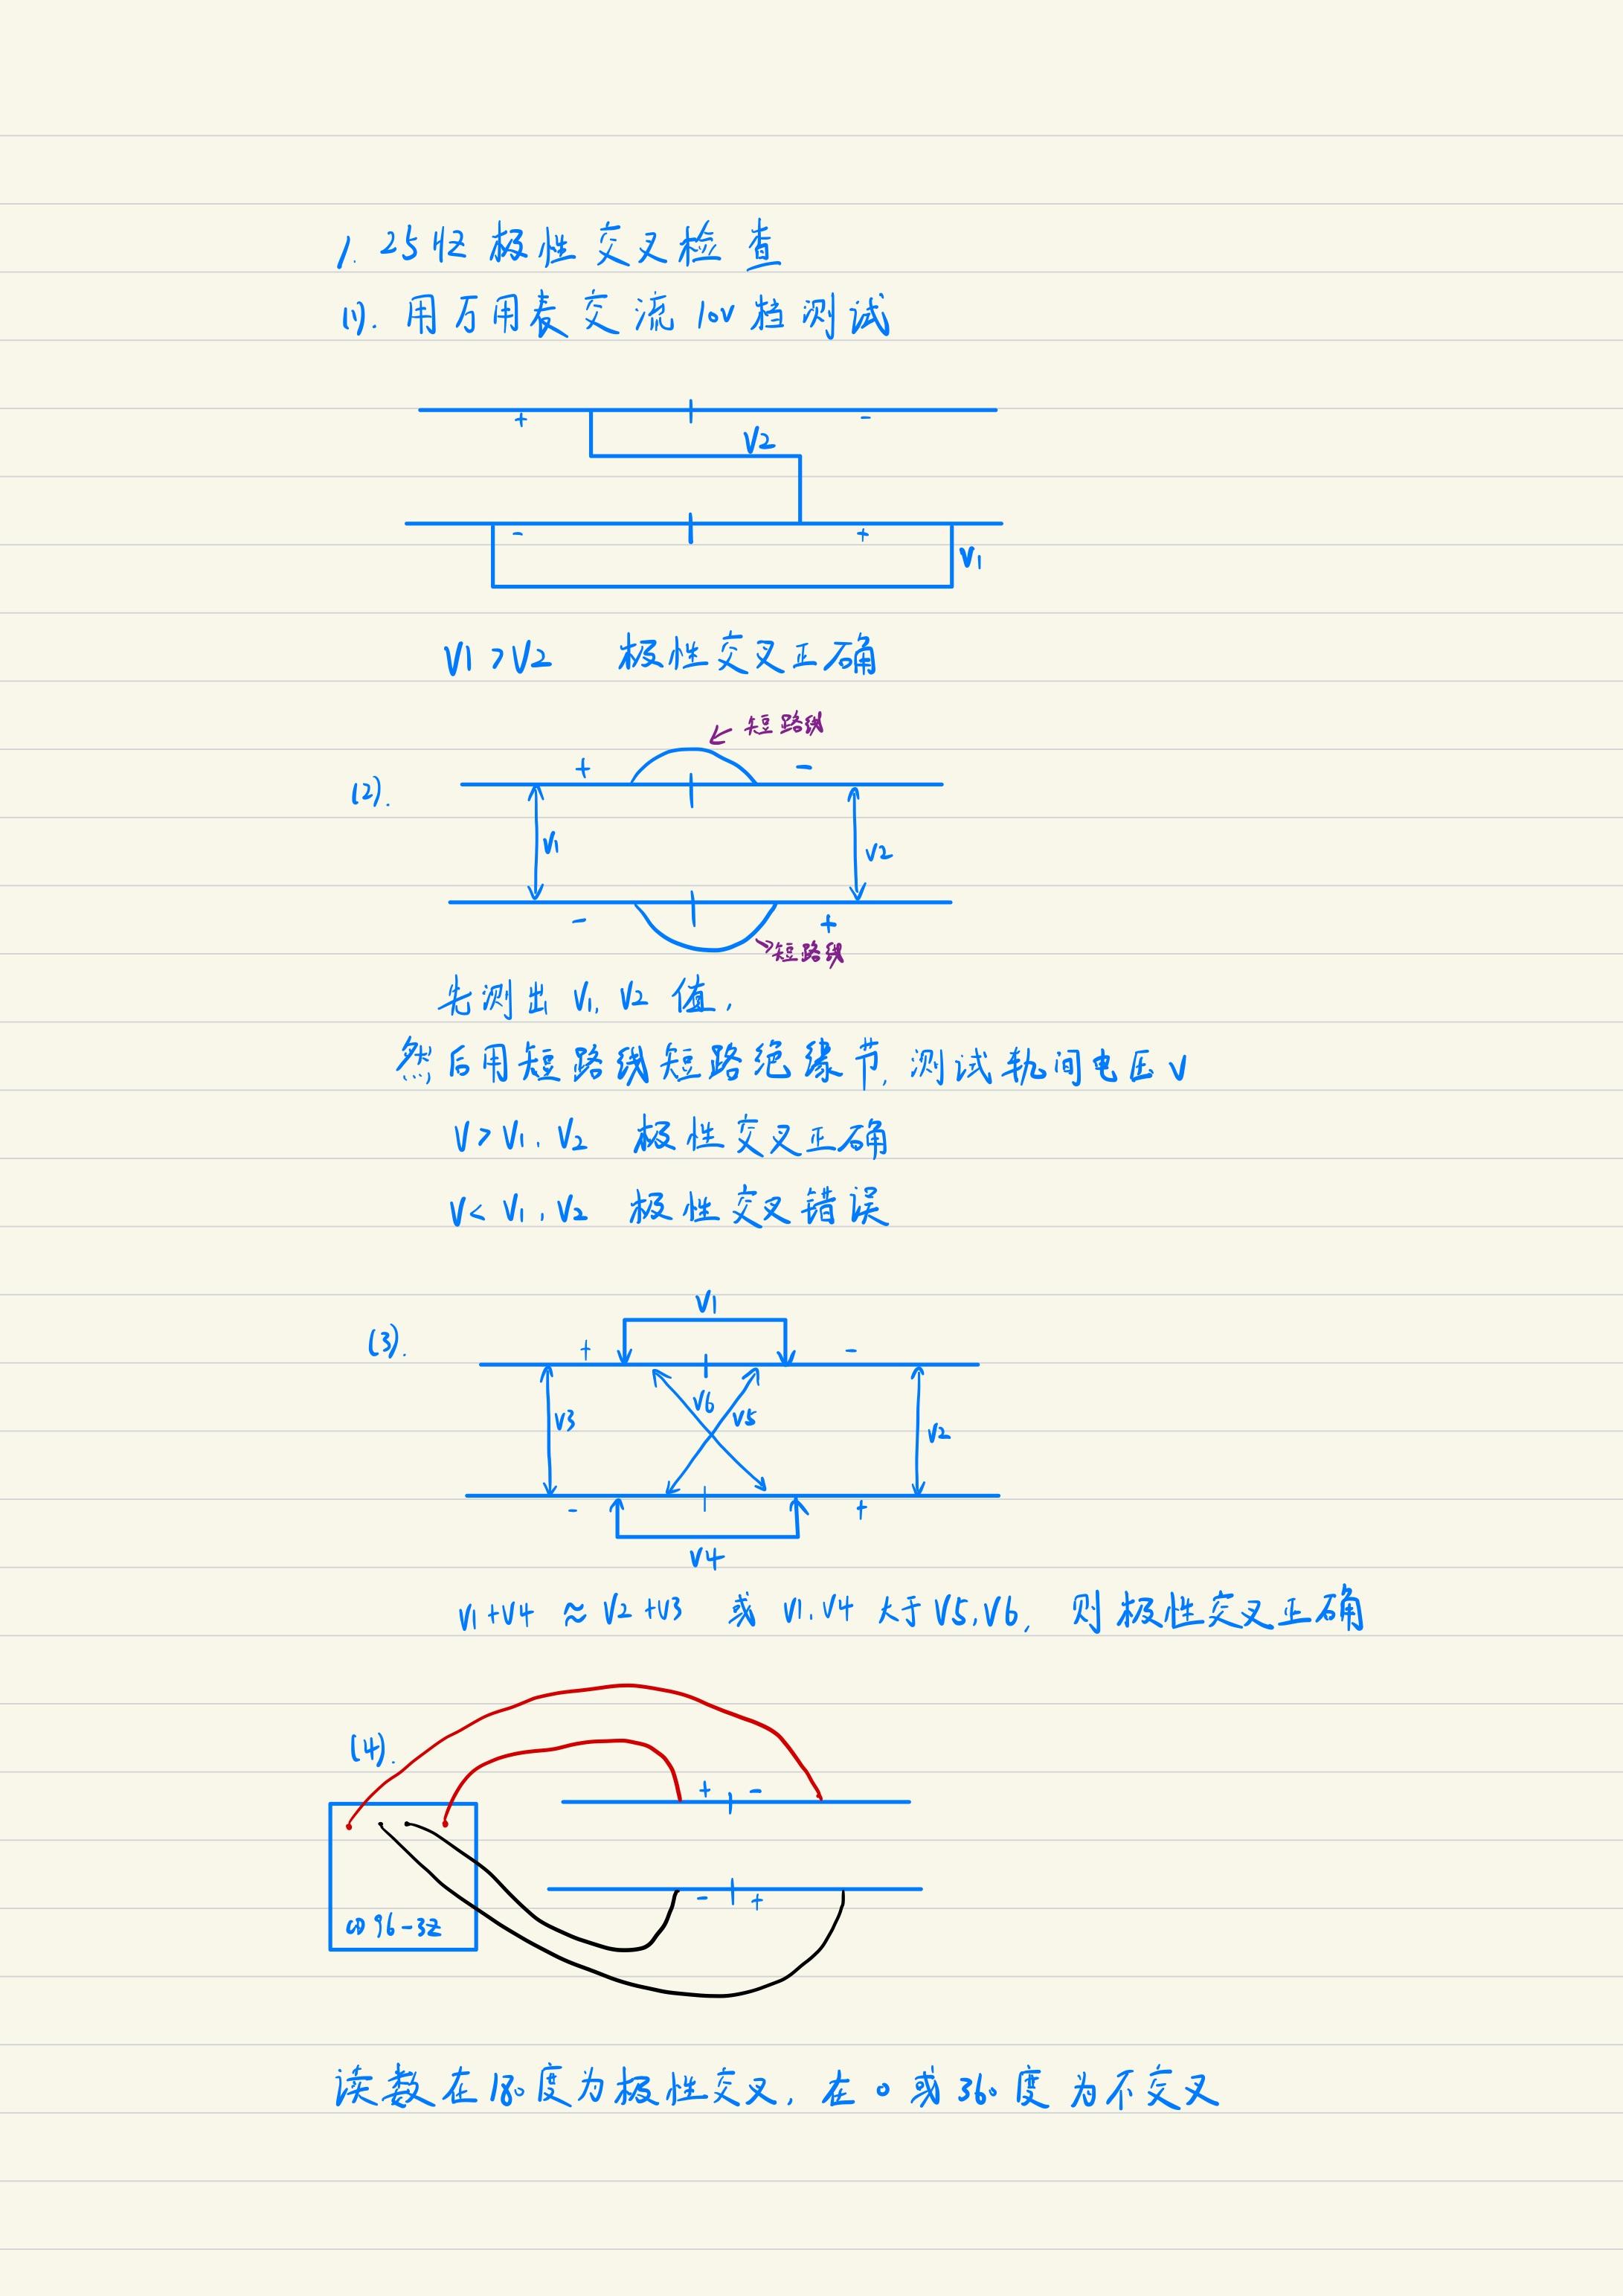 1. 25HZ 极性交叉检查
(1). 用万用表交流10V档测试
+ -
V2
- +
V1
V1 > V2 极性交叉正确
短路线
(2). + -
V1 V2
- +
短路线
先测出 V1, V2 值,
然后用短路线短路绝缘节, 测试轨间电压 V
V > V1, V2 极性交叉正确
V < V1, V2 极性交叉错误
V1
(3). + -
V6
V3 V5 V2
- +
V4
V1+V4 ≈ V2+V3 或 V1, V4 大于 V5, V6, 则极性交叉正确
(4).
+ -
- +
CD96-3Z
读数在180度为极性交叉, 在0或360度为不交叉